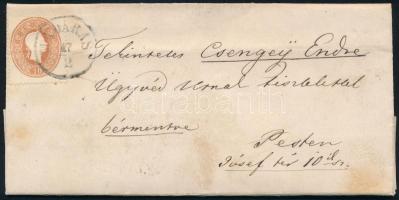 Tekintetes Csengeÿ Endre
Ügyvéd Urnak tisztelettel
bérmentve
Pesten
József tér 10